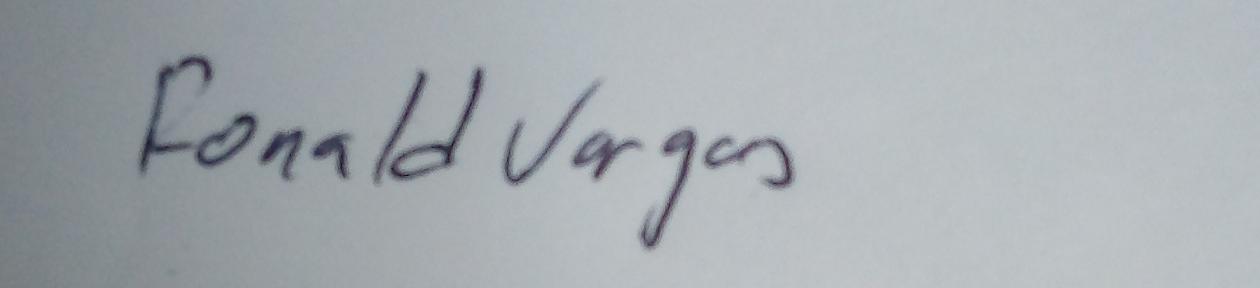 Ronald Vargas